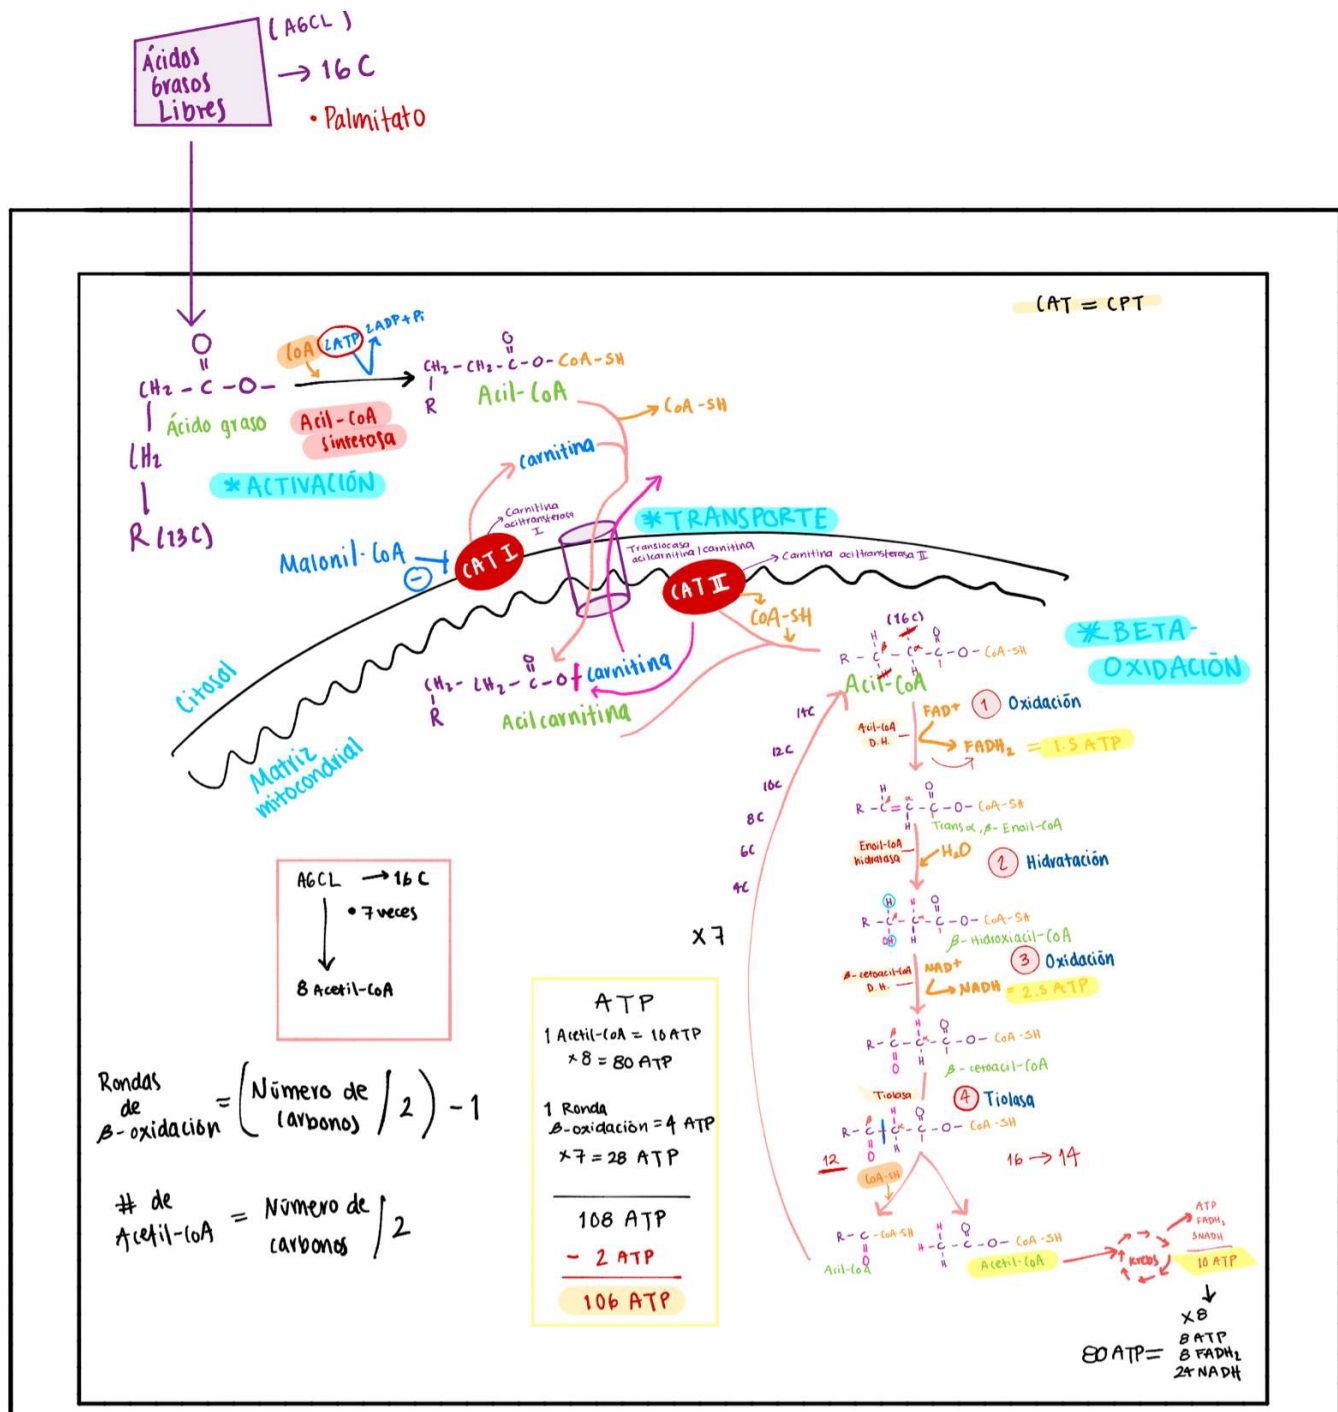 Ácidos
Grasos
Libres
(AGCL)
→ 16 C
• Palmitato
CAT = CPT
O
CH₂ - C - O -
CH₂
R (13C)
Ácido graso
CoA 2ATP 2ADP + Pi
Acil-CoA
sintetasa
* ACTIVACIÓN
O
CH₂ - CH₂ - C - O - CoA-SH
R
Acil-CoA
CoA-SH
carnitina
Carnitina
aciltransferasa
I
* TRANSPORTE
Malonil-CoA
CAT I
Translocasa
acilcarnitina/carnitina
Carnitina aciltransferasa II
CAT II
CoA-SH
Citosol
Matriz
mitocondrial
O
CH₂ - CH₂ - C - O
carnitina
R
Acilcarnitina
* BETA-
OXIDACIÓN
(16C)
H H O
R - C - C - C - O - CoA-SH
β α
H H
Acil-CoA
FAD+
1 Oxidación
Acil-CoA
D.H.
FADH₂ = 1.5 ATP
H O
R - C = C - C - O - CoA-SH
H
Trans α, β- Enoil-CoA
Enoil-CoA
hidratasa
H₂O
2 Hidratación
H H O
R - C - C - C - O - CoA-SH
OH H
β-Hidroxiacil-CoA
β-cetoacil-CoA
D.H.
NAD+
3 Oxidación
NADH = 2.5 ATP
H O
R - C - C - C - O - CoA-SH
O H
β-cetoacil-CoA
Tiolasa
4 Tiolasa
H O
R - C - C - C - O - CoA-SH
O H
12
CoA-SH
16 → 14
R - C - CoA-SH
O
Acil-CoA
H O
H - C - C - O - CoA-SH
H
Acetil-CoA
Krebs
ATP
FADH₂
3NADH
10 ATP
x8
80 ATP =
8 ATP
8 FADH₂
24 NADH
14C
12C
10C
8C
6C
4C
x7
AGCL → 16 C
• 7 veces
8 Acetil-CoA
Rondas
de
β-oxidación
= (Número de
carbonos / 2) - 1
# de
Acetil-CoA
= Número de
carbonos / 2
ATP
1 Acetil-CoA = 10 ATP
x8 = 80 ATP
1 Ronda
β-oxidación = 4 ATP
x7 = 28 ATP
108 ATP
- 2 ATP
106 ATP